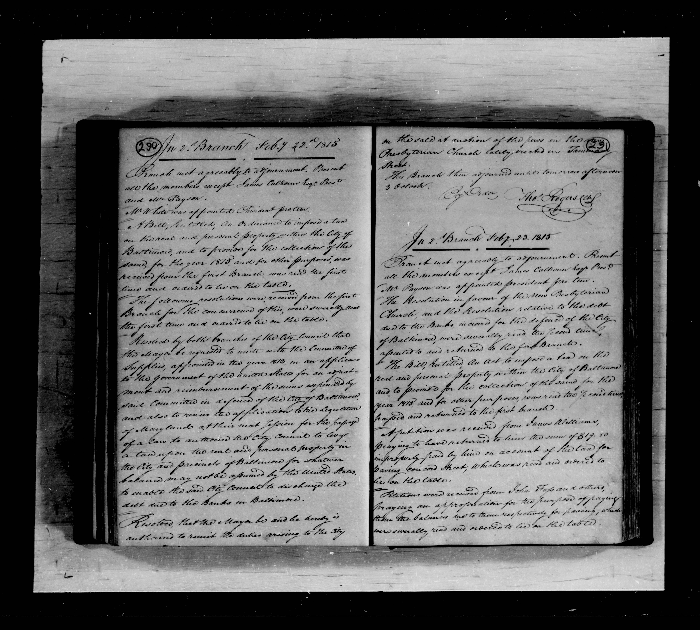 230
In 2d Branch Feby 22d 1815
Branch met agreeably to adjournment. Present
all the members except James Calhoun Esqr Prest
and Mr Payson.
Mr White was appointed President protem.
A Bill, Entitled, An Ordinance to impose a tax
on the real and personal property within the City of
Baltimore, and to provide for the collection of the
same, for the year 1815 and for other purposes, was
received from the first Branch, was read the first
time and ordered to lie on the table.
The following resolutions were received from the first
Branch for the concurrence of this, were severally read
the first time and ordered to lie on the table.
Resolved by both branches of the City Council that
the Mayor be requested to unite with the Committee of
Supplies, appointed in the year 1814 in an application
to the government of the United States for an adjust-
ment and reimbursement of the sums expended by
said Committee in defence of the City of Baltimore
and also to unite in application to the Legislature
of Maryland at their next session for the passage
of a law to authorise the City Council to levy
a tax upon the real and personal property in
the City and precincts of Baltimore for whatever
balance may not be assumed by the United States,
to enable the said City Council to discharge the
debt due to the Banks in Baltimore.
Resolved that the Mayor be and he hereby is
authorised to remit the duties arising to the City
231
on the sale at auction of the pews in the new
Presbyterian Church lately erected in
Street
The Branch then adjourned until tomorrow afternoon
3 Oclock.
By Order
Thos. Rogers Clk
In 2d Branch Feby. 23. 1815
Branch met agreeably to adjournment. Present
all the members except James Calhoun Esqr Prest
Mr Payson was appointed president pro tem.
The Resolution in favour of the New Presbyterian
Church, and the Resolution relative to the debt
due to the Banks incurred for the defence of the City
of Baltimore were severally read the second time
assented to and returned to the first Branch.
The Bill, Entitled An Act to impose a tax on the
real and personal property within the City of Baltimore
and to provide for the collection of the same for the
year 1815 and for other purposes was read the 2d time
passed and returned to the first branch
A petition was received from James Williams,
praying to have returned to him the sum of
improperly paid by him on account of the tax for
paving on and
lie on the table.
Petitions were received from John and others,
praying an appropriation for the purpose of paying
them the balances due to them respectively for paving, which
were severally read and ordered to lie on the table.